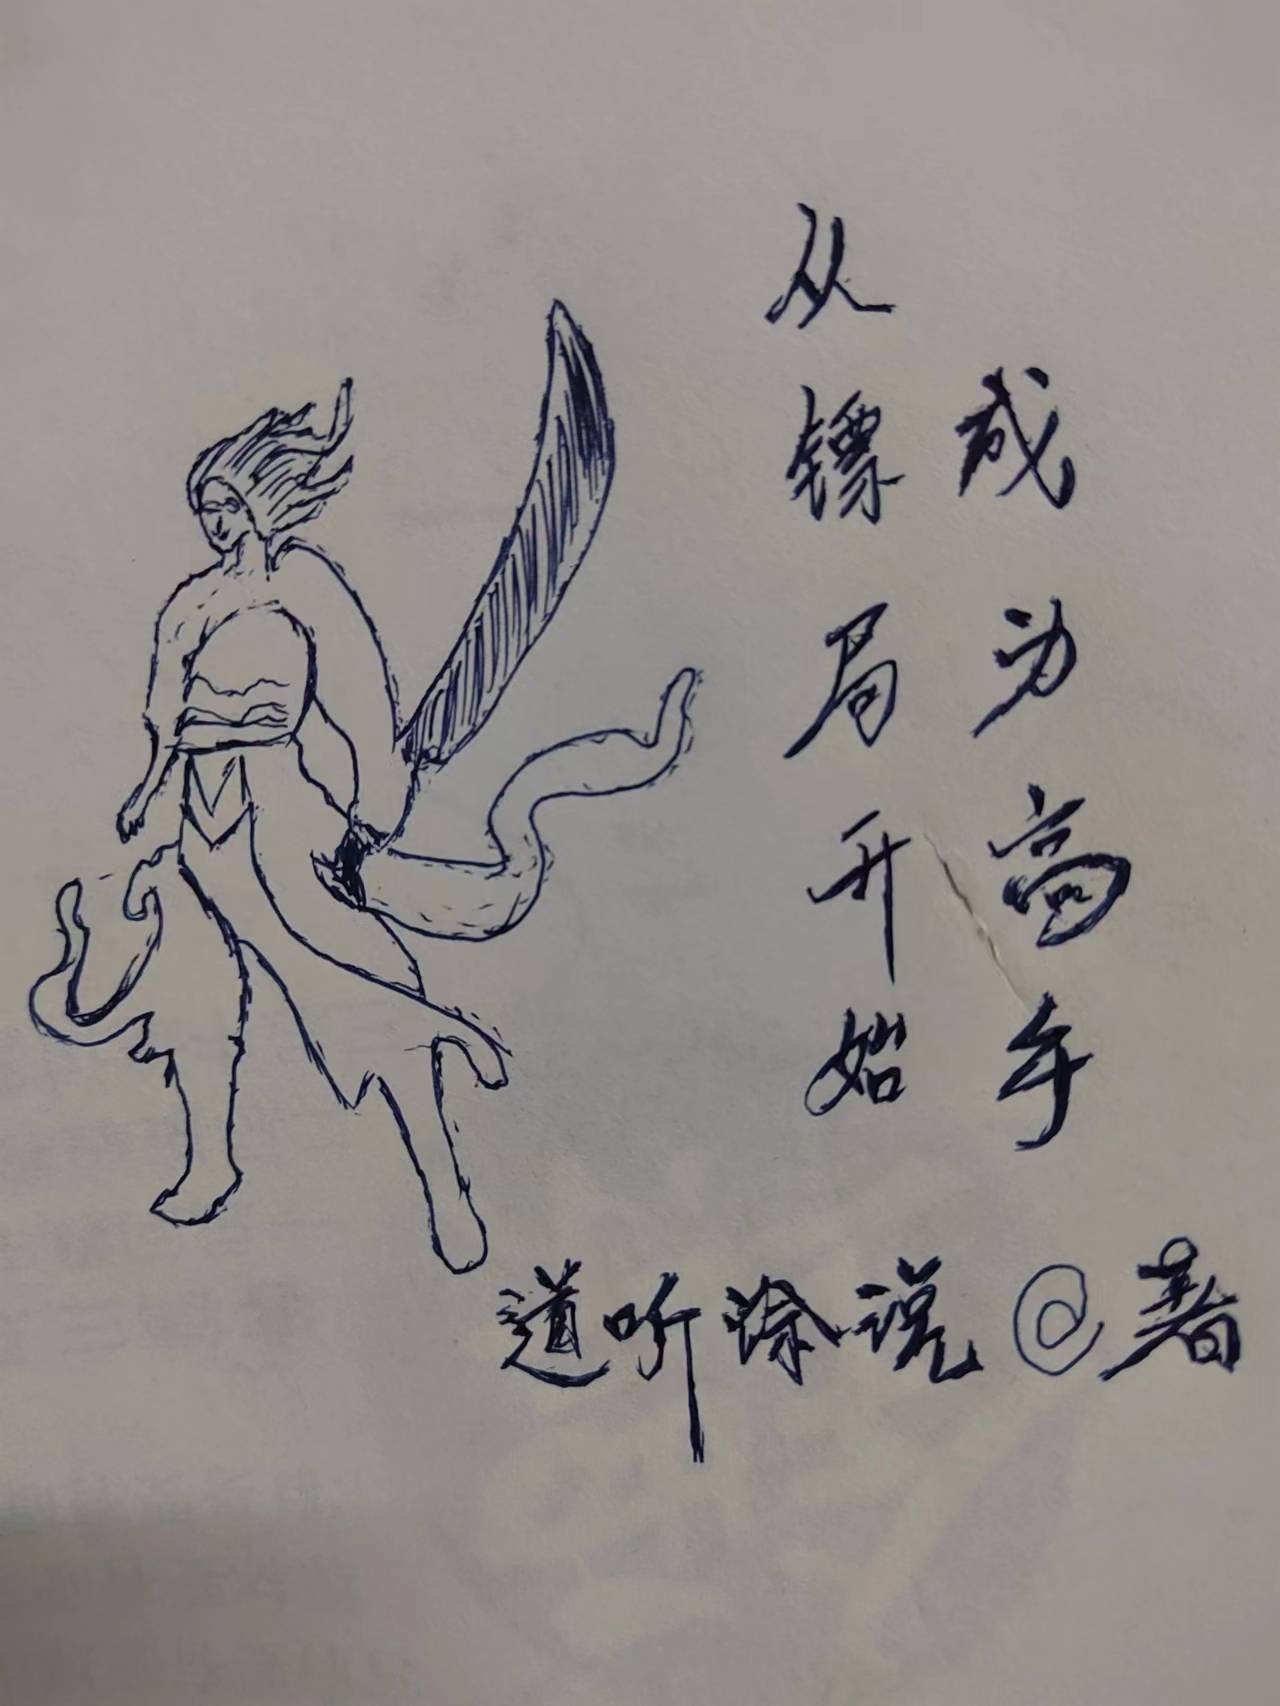 从镖局开始
成为高手
道听涂说@著